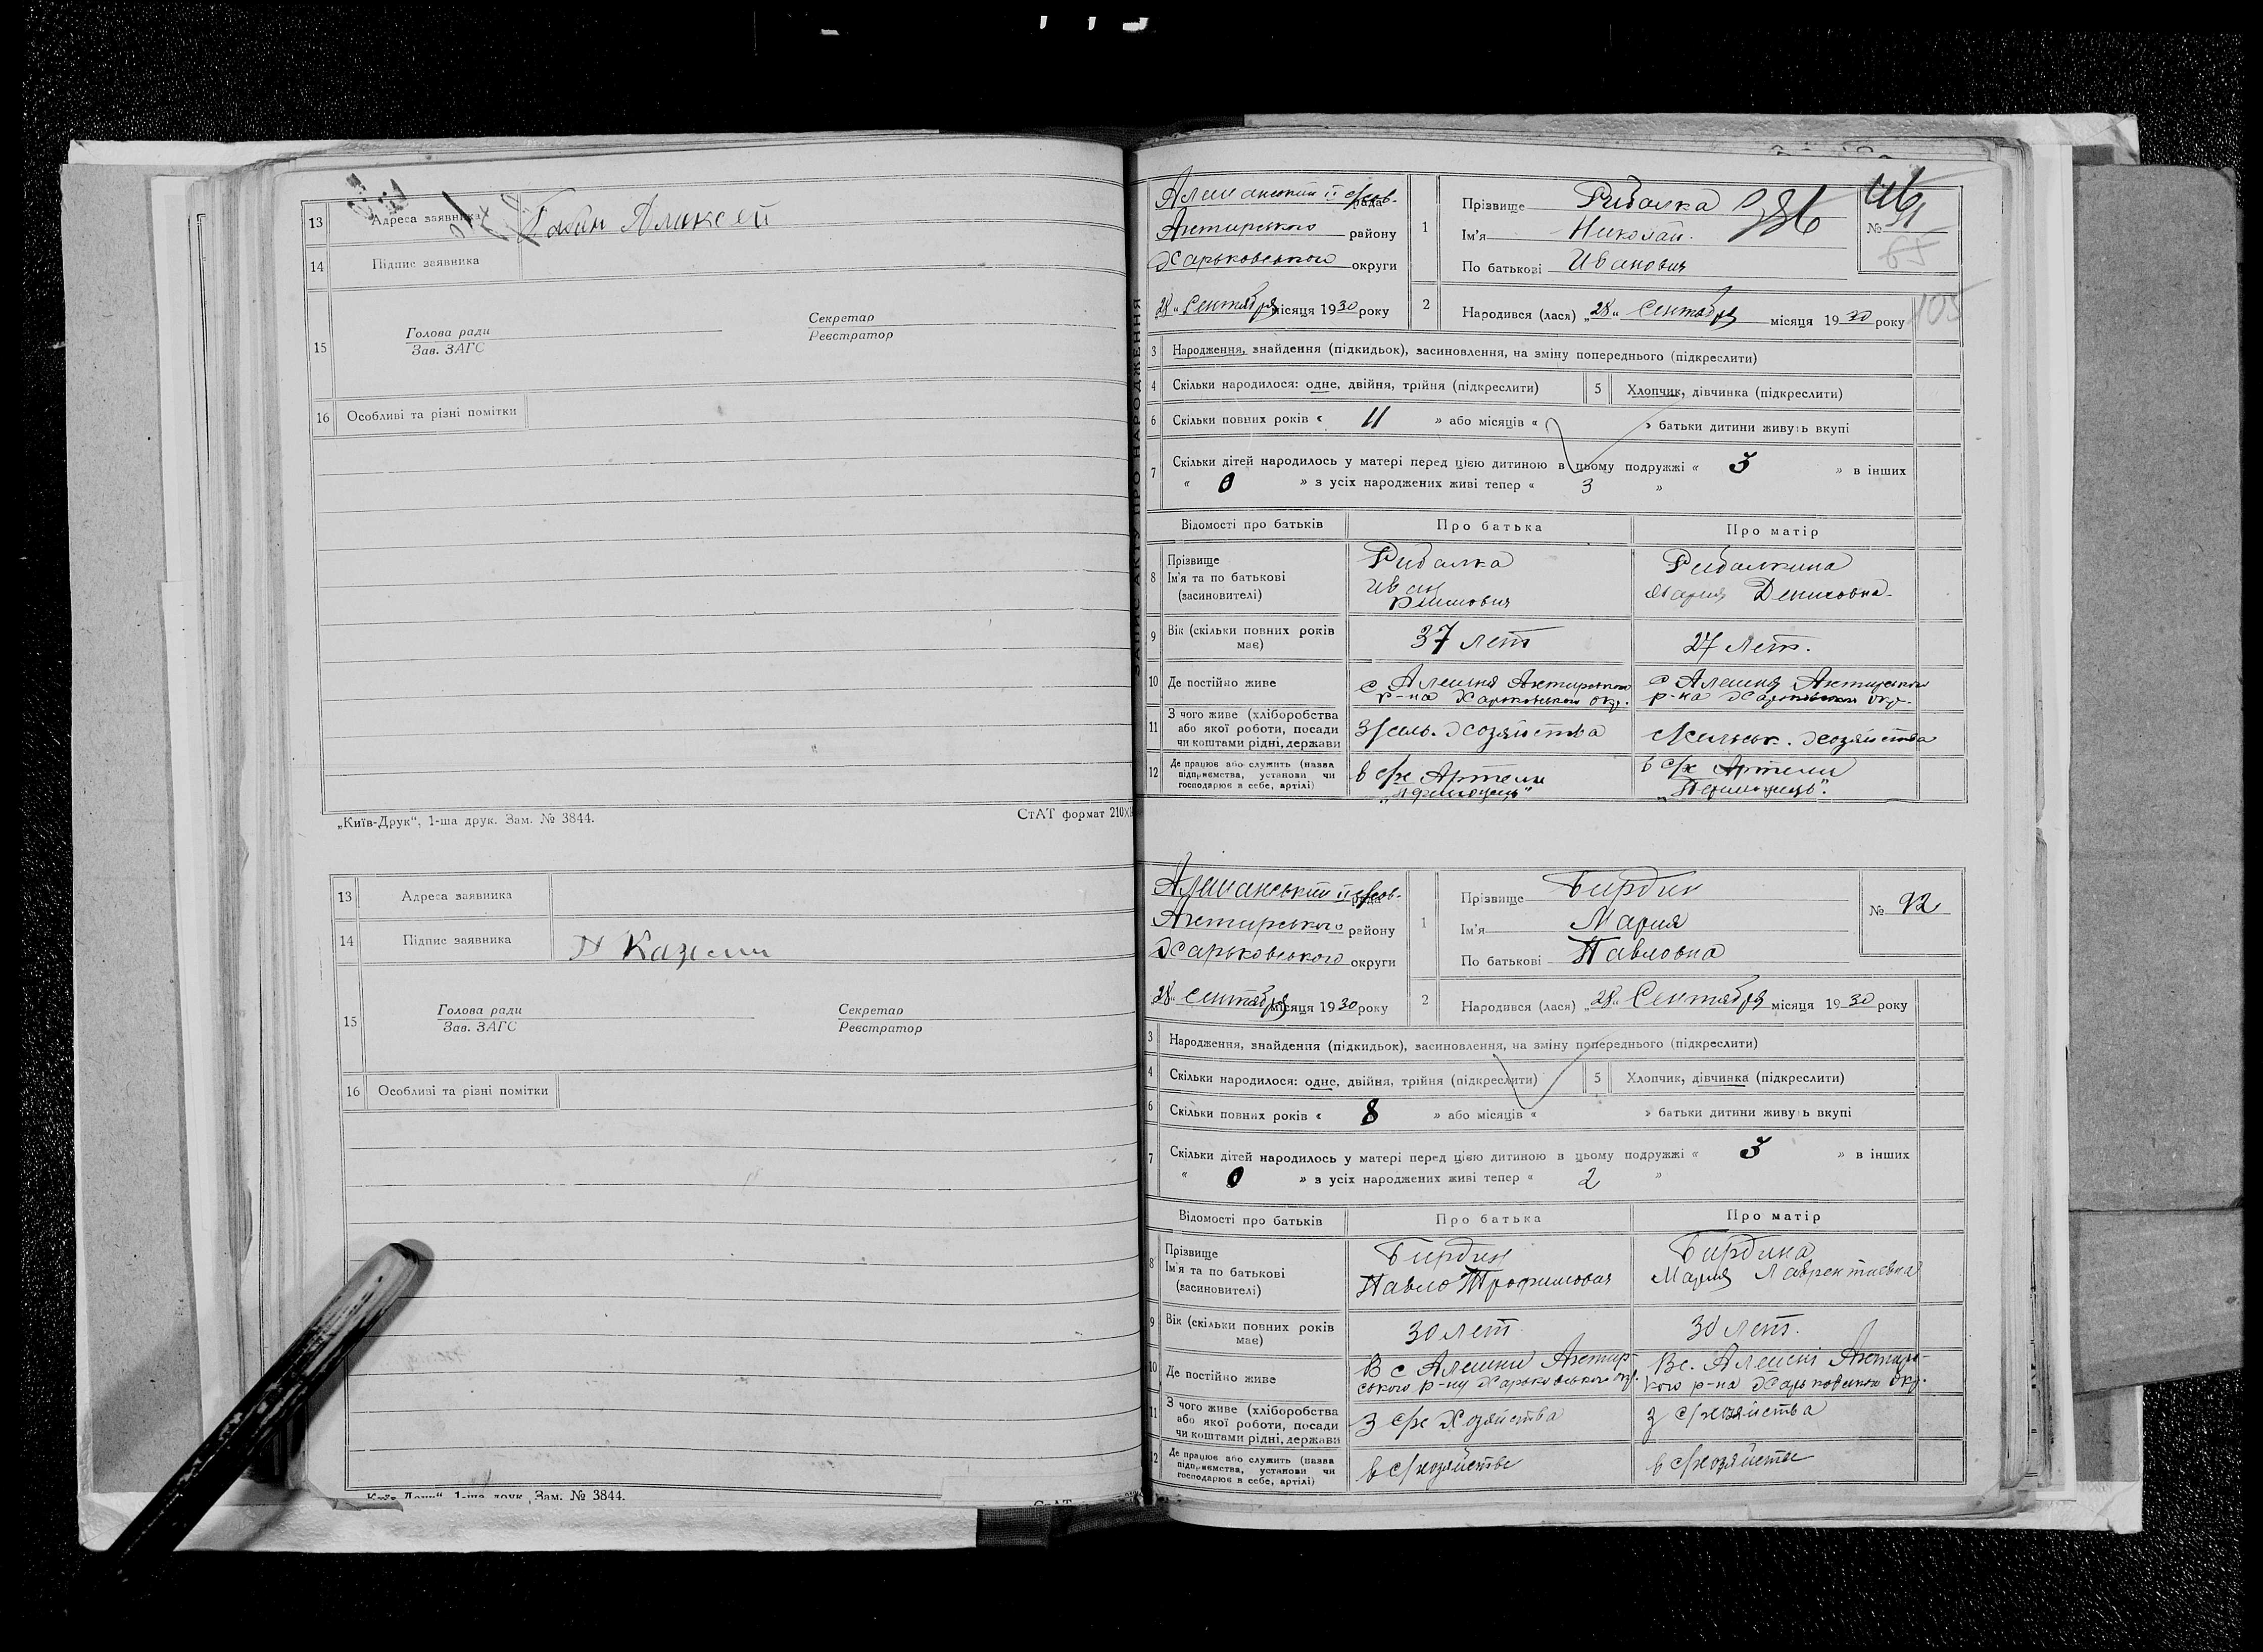 13 Адреса заявника
Бабин Алексей
14 Підпис заявника
15
Голова ради
Зав. ЗАГС
Секретар
Реєстратор
16 Особливі та різні помітки
„Київ-Друк“, 1-ша друк. Зам. № 3844.
СтАТ формат 210х
13 Адреса заявника
14 Підпис заявника
15
Голова ради
Зав. ЗАГС
Секретар
Реєстратор
16 Особливі та різні помітки
1-ша друк. Зам. № 3844.
ЗАПИС АКТУ ПРО НАРОДЖЕННЯ
Алешанський II рада
Ахтирського району
Харьковського округи
„28“ Сентября місяця 1930 року
1 Прізвище Рибалка
Ім'я Николай.
По батькові Иванович
№ 91
65
105
2 Народився (лася) „28“ Сентября місяця 1930 року
3 Народження, знайдення (підкидьок), засиновлення, на зміну попереднього (підкреслити)
4 Скільки народилося: одне, двійня, трійня (підкреслити) 5 Хлопчик, дівчинка (підкреслити)
6 Скільки повних років « 11 » або місяців « » батьки дитини живуть вкупі
7 Скільки дітей народилось у матері перед цією дитиною в цьому подружжі « 3 » в інших
« 0 » з усіх народжених живі тепер « 3 »
Відомості про батьків Про батька Про матір
8 Прізвище Ім'я та по батькові (засиновителі)
Рибалка Иван
Рибалкина Мария Денисовна.
9 Вік (скільки повних років має) 37 лет 27 лет.
10 Де постійно живе
с Алешня Ахтирського р-на Харьковського окр.
с Алешня Ахтирського р-на Харьковського окр.
11 З чого живе (хліборобства або якої роботи, посади чи коштами рідні, держави
З/сель. Хозяйства
сельськ. хозяйства
12 Де працює або служить (назва підприємства, установи чи господарює в себе, артілі)
в с/х Артели
в с/х Артели
Алешанський II рада
Ахтирського району
Харьковського округи
„28“ Сентября місяця 1930 року
1 Прізвище Бирдин
Ім'я Мария
По батькові Павловна
№ 92
2 Народився (лася) „28“ Сентября місяця 1930 року
3 Народження, знайдення (підкидьок), засиновлення, на зміну попереднього (підкреслити)
4 Скільки народилося: одне, двійня, трійня (підкреслити) 5 Хлопчик, дівчинка (підкреслити)
6 Скільки повних років « 8 » або місяців « » батьки дитини живуть вкупі
7 Скільки дітей народилось у матері перед цією дитиною в цьому подружжі « 3 » в інших
« 0 » з усіх народжених живі тепер « 2 »
Відомості про батьків Про батька Про матір
8 Прізвище Ім'я та по батькові (засиновителі)
Бирдин Павло Трофимович
Бирдина Мария Лаврентиевна
9 Вік (скільки повних років має) 30 лет 30 лет.
10 Де постійно живе
В с Алешни Ахтирського р-ну Харьковського окр.
В с. Алешні Ахтирского р-на Харьковського окр.
11 З чого живе (хліборобства або якої роботи, посади чи коштами рідні, держави
З с/х Хозяйства
З с/хозяйства
12 Де працює або служить (назва підприємства, установи чи господарює в себе, артілі)
в с/хозяйстве
в с/хозяйстве